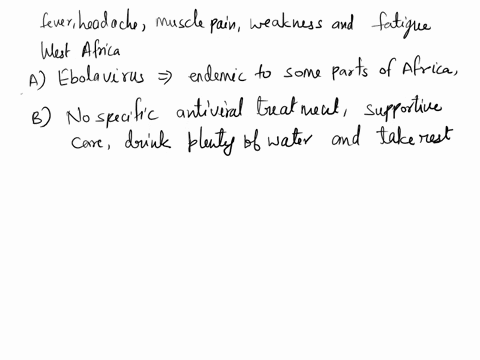 fever, headache, muscle pain, weakness and fatigue
West Africa
A) Ebolavirus ⇒ endemic to some parts of Africa,
B) No specific antiviral treatment, supportive
care, drink plenty of water and take rest